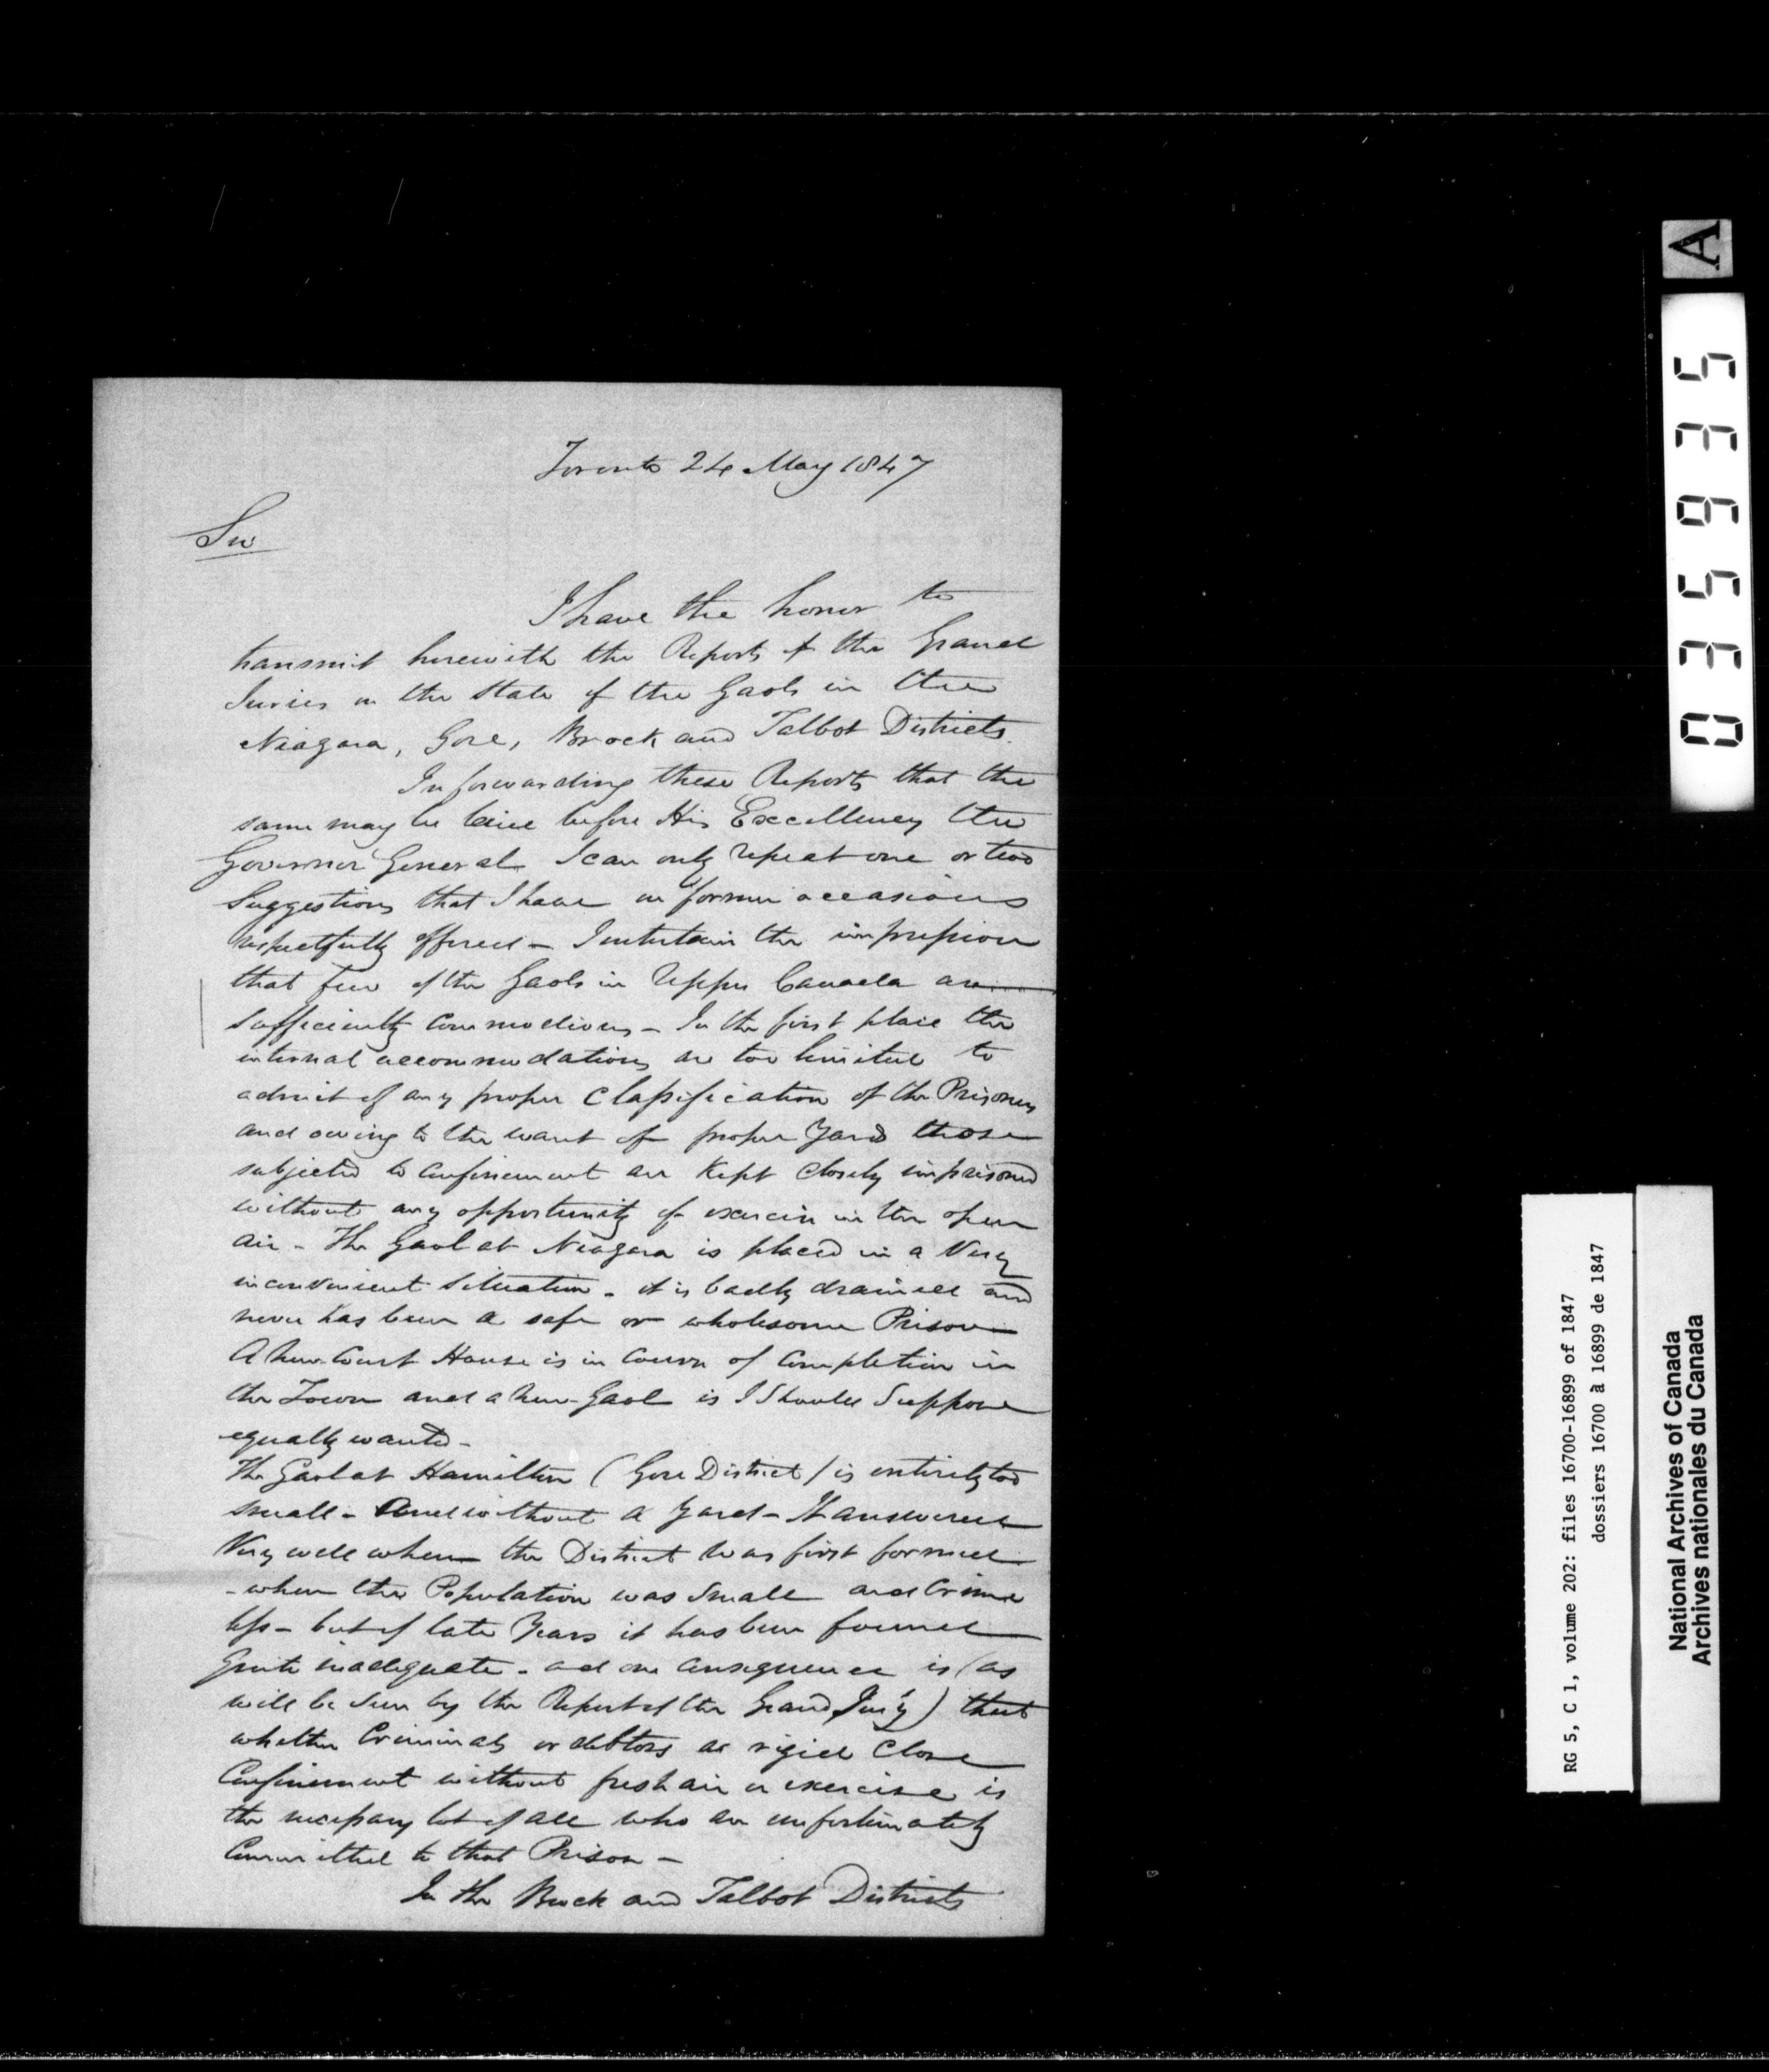 Toronto 24 May 1847
Sir
I have the honor to
transmit herewith the Reports of the Grand
Juries on the state of the Gaols in the
Niagara, Gore, Brock and Talbot Districts.
In forwarding these Reports that the
same may be laid before His Excellency the
Governor General I can only repeat one or two
Suggestions that I have on former occasions
respectfully offered - I entertain the impression
that few of the Gaols in Upper Canada are
sufficiently commodious - In the first place the
internal accommodations are too limited to
admit of any proper Classification of the Prisoners
and owing to the want of proper Yards those
subjected to confinement are Kept closely imprisoned
without any opportunity of exercise in the open
air - The Gaol at Niagara is placed in a Very
inconvenient Situation - it is badly drained and
never has been a safe or wholesome Prison
A new Court House is in Course of Completion in
the Town and a new Gaol is I Should Suppose
equally wanted -
The Gaol at Hamilton (Gore District) is entirely too
small - And without a Yard - It answered
Very well when the District was first formed
- when the Population was Small and Crime
less - but of late Years it has been found
quite inadequate - and one consequence is (as
will be seen by the Report of the Grand Jury) that
whether Criminals or debtors a rigid Close
Confinement without fresh air or exercise is
the necessary lot of all who are unfortunately
Committed to that Prison -
In the Brock and Talbot Districts
A
035935
RG 5, C 1, volume 202: files 16700-16899 of 1847
dossiers 16700 à 16899 de 1847
National Archives of Canada
Archives nationales du Canada